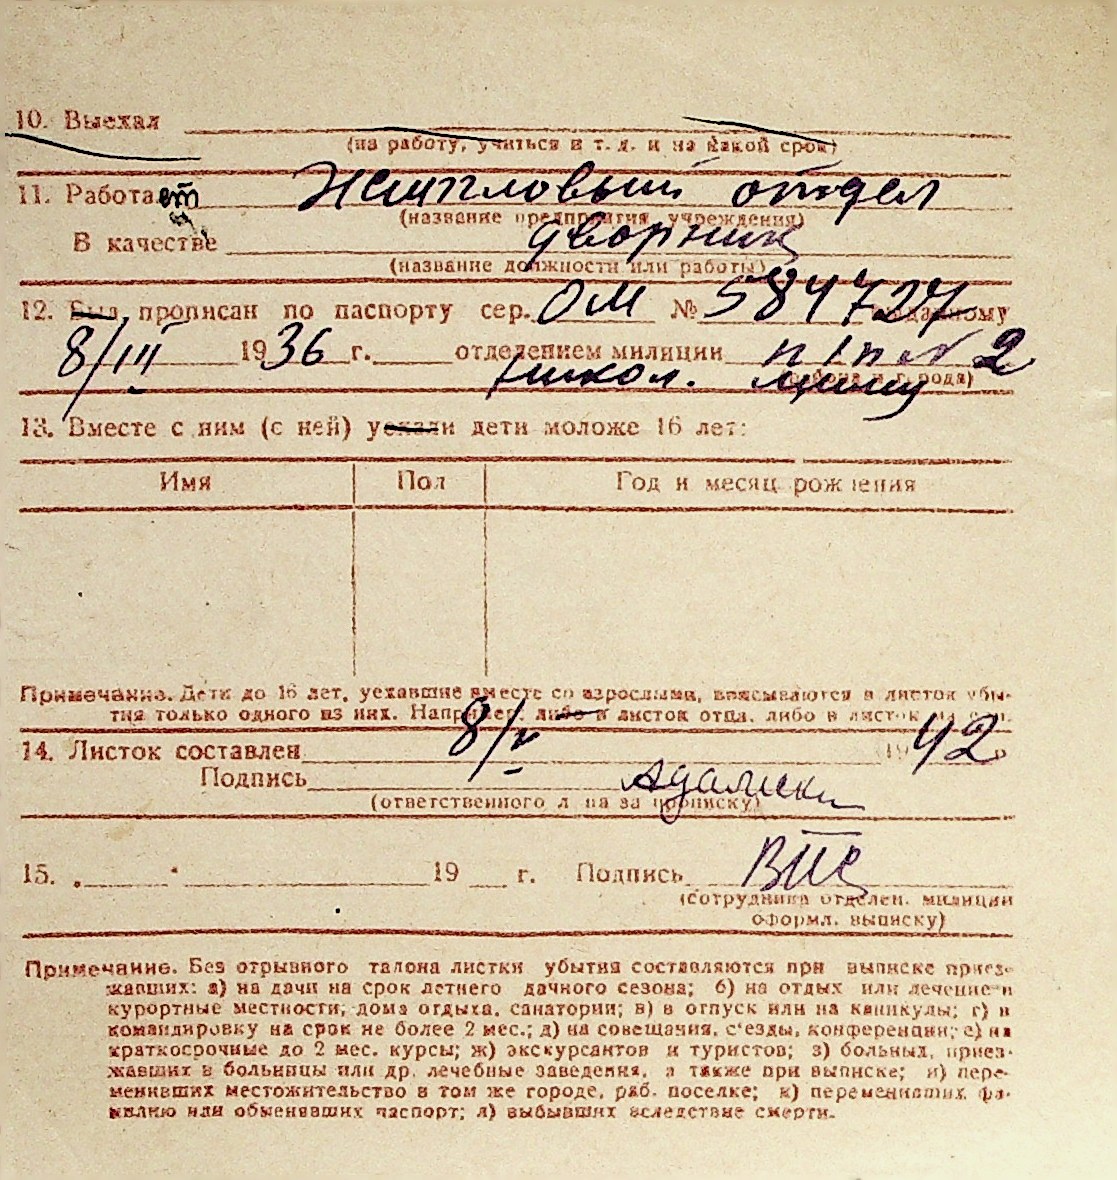 10. Выехал
(на работу, учиться в т. д. и на какой срок)
11. Работает Жилпловый отдел
(название предприятия, учреждения)
В качестве дворник
(название должности или работы)
12. Был прописан по паспорту сер. ОМ № 584727 выданному
8/III 1936 г. отделением милиции № 2
(района и города)
13. Вместе с ним (с ней) уехали дети моложе 16 лет:
Имя Пол Год и месяц рождения
Примечание. Дети до 16 лет, уехавшие вместе со взрослыми, вписываются в листок убы-
тия только одного из них. Например: либо в листок отца, либо в листок
14. Листок составлен 8/V 1942 г.
Подпись
(ответственного лица за прописку)
15. " " 19 г. Подпись
(сотрудника отделен. милиции
оформл. выписку)
Примечание. Без отрывного талона листки убытия составляются при выписке приез-
жавших: а) на дачи на срок летнего дачного сезона; б) на отдых или лечение в
курортные местности, дома отдыха, санатории; в) в отпуск или на каникулы; г) в
командировку на срок не более 2 мес.; д) на совещания, с'езды, конференции; е) на
краткосрочные до 2 мес. курсы; ж) экскурсантов и туристов; з) больных, приез-
жавших в больницы или др. лечебные заведения, а также при выписке; и) пере-
менивших местожительство в том же городе, раб. поселке; к) переменивших фа-
милию или обменявших паспорт; л) выбывших вследствие смерти.